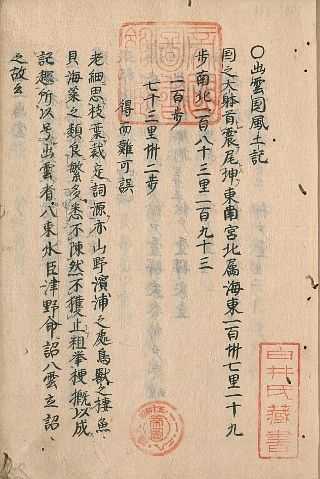 〇出雲国風土記
国之大躰首震尾坤東南宮北属海東一百卅七里一十九
歩南北一百八十三里一百九十三
一百歩
七十三里卅一歩
得而難可誤
老細思枝葉裁定詞源亦山野濱浦之処鳥獣之棲魚
貝海菜之類良繁多悉不陳然不獲止粗挙梗概以成
記趣所以号出雲者八束水臣津野命詔八雲立詔
之故云
白井氏蔵書